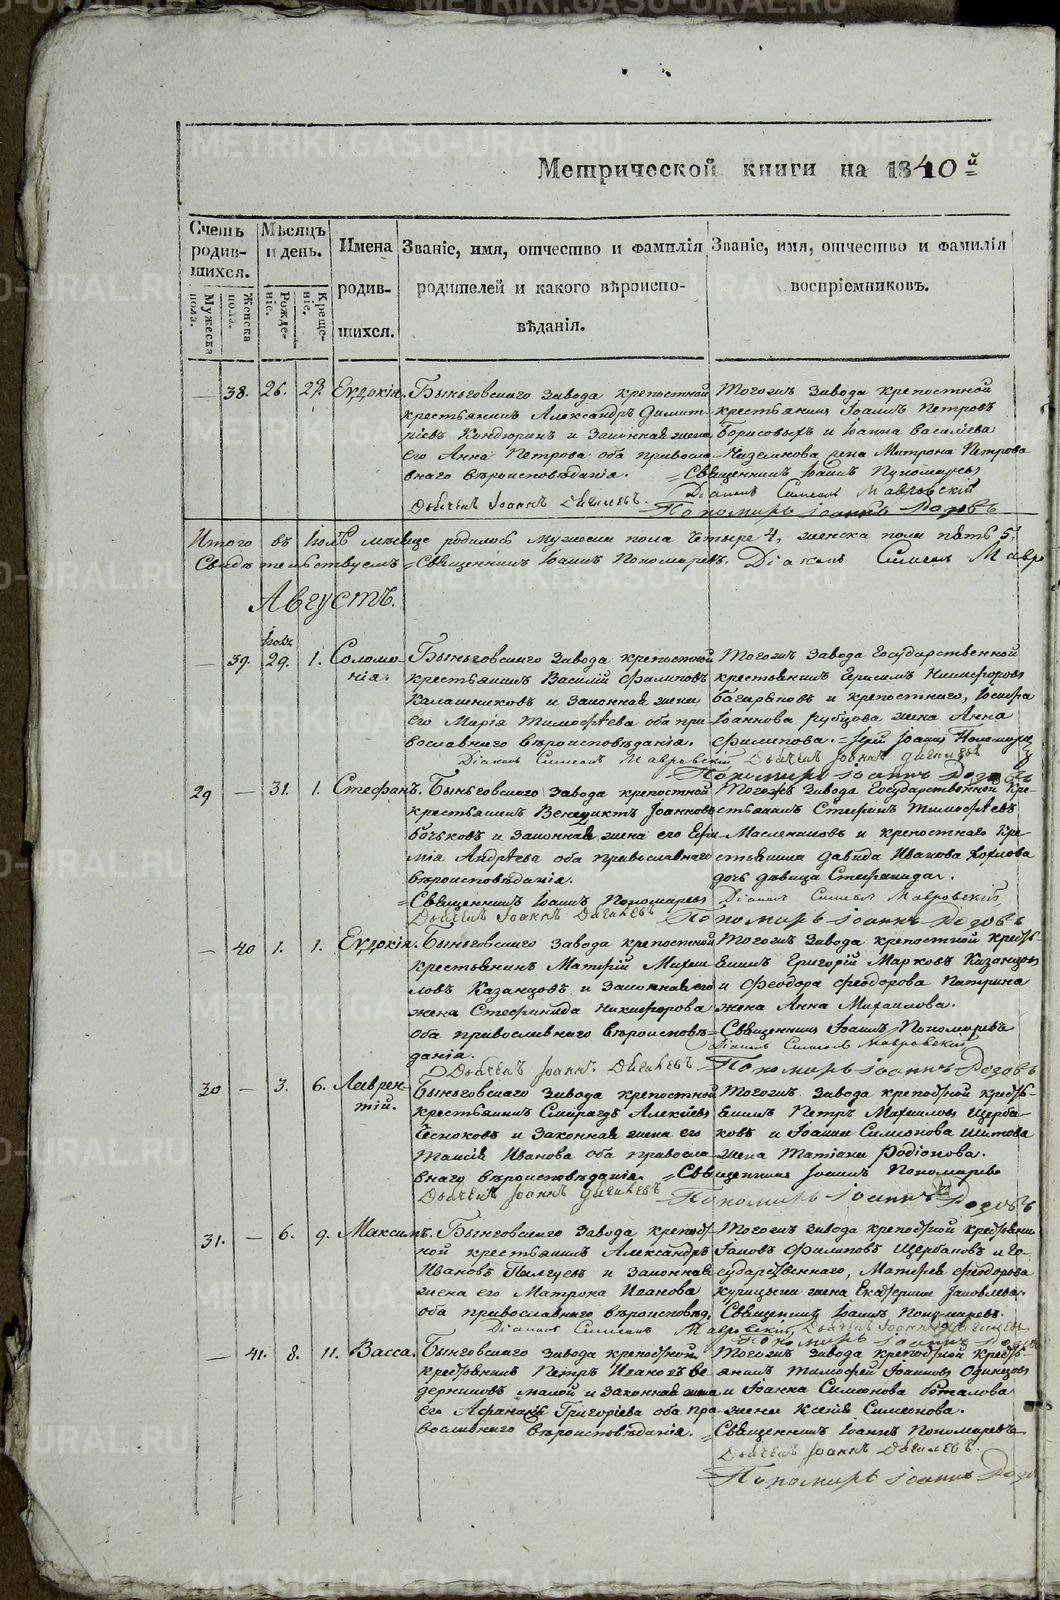 METRIKI.GASO-URAL.RU
Метрической книги на 1840й
Счетъ родив-шихся.
Мужеска пола.
Женска пола.
Мѣсяцъ и день.
Рожде-ніе.
Креще-ніе.
Имена родив-шихся.
Званіе, имя, отчество и фамилія
родителей и какого вѣроиспо-
вѣданія.
Званіе, имя, отчество и фамилія
воспріемниковъ.
— 38. 26. 29. Евдокія.
Быньговскаго завода крепостной
крестьянинъ Александръ Димит-
ріевъ Кондюринъ и законная жена
его Анна Петрова оба правосла-
внаго вѣроисповѣданія.
Тогожъ завода крепостной
крестьянинъ Іоаннъ Петровъ
Борисовыхъ и Іоанна Василіева
жена Матрона Петрова
=Священникъ Іоаннъ Пономаревъ
Діаконъ Симеонъ Мавровскій
Дьячекъ Іоаннъ Дягилевъ.
Пономарь Іоаннъ Розовъ
Итого въ Іюлѣ мѣсяце родилось мужеска пола четыре 4, женска пола пять 5,
Свидѣтельствуемъ =Священникъ Іоаннъ Пономаревъ. Діаконъ Симеонъ Мавро
Августъ.
— 39. Іюля 29. 1. Соломо-нія.
Быньговскаго завода крепостной
крестьянинъ Василій Филиповъ
Калашниковъ и законная жена
его Марія Тимофѣева оба пра-
вославнаго вѣроисповѣданія.
Тогожъ завода государственной
крестьянинъ Герасимъ Никифоровъ
Багаряковъ и крепостнаго, Іосифа
Іоаннова Рубцова жена Анна
Филипова. =Іерей Іоаннъ Пономаре
Діаконъ Симеонъ Мавровскій Дьячекъ Іоаннъ Дягилевъ
Пономарь Іоаннъ Розовъ
29 — 31. 1. Стефанъ.
Быньговскаго завода крепостной
крестьянинъ Венедиктъ Іоанновъ
Бочковъ и законная жена его Ефи-
мія Андрѣева оба православнаго
вѣроисповѣданія.
Тогожъ завода государственной кре-
стьянинъ Стефанъ Тимофѣевъ
Маслениковъ и крепостнаго кре-
стьянина Давида Иванова Хохлова
дочь дѣвица Стефанида.
=Священникъ Іоаннъ Пономаревъ
Діаконъ Симеонъ Мавровскій
Дьячекъ Іоаннъ Дягилевъ
Пономарь Іоаннъ Розовъ
— 40 1. 1. Евдокія.
Быньговскаго завода крепостной
крестьянинъ Матфій Михаи-
ловъ Казанцовъ и законная его
жена Стефанида Никифорова
оба православнаго вѣроисповѣ-
данія.
Тогожъ завода крепостной кресть-
янинъ Григорій Марковъ Казанцовъ
и Феодора Феодорова Патрина
жена Анна Михаилова.
=Священникъ Іоаннъ Пономаревъ
Діаконъ Симеонъ Мавровскій
Дьячекъ Іоаннъ Дягилевъ
Пономарь Іоаннъ Розовъ
30 — 3. 6. Лаврен-тій.
Быньговскаго завода крепостной
крестьянинъ Смарагдъ Алексіевъ
Чесноковъ и законная жена его
Таисія Иванова оба правосла-
внаго вѣроисповѣданія.
Тогожъ завода крепостной кресть-
янинъ Петръ Михаиловъ Щерба-
ковъ и Іоанна Симеонова Шитова
жена Татіана Родіонова.
=Священникъ Іоаннъ Пономаревъ
Дьячекъ Іоаннъ Дягилевъ
Пономарь Іоаннъ Розовъ
31. — 6. 9. Максимъ.
Быньговскаго завода крепост-
ной крестьянинъ Александръ
Ивановъ и законная
жена его Матрона Иванова
оба православнаго вѣроисповѣд,
Тогожъ завода крепостной крестьяни-
Іаковъ Филиповъ Щербаковъ и го-
сударственнаго, Матфея Феодорова
жена Екатерина Іаковлева.
Священникъ Іоаннъ Пономаревъ.
Діаконъ Симеонъ Мавровскій, Дьячекъ Іоаннъ Дягилевъ
Пономарь Іоаннъ Розовъ
— 41. 8. 11. Васса.
Быньговскаго завода крепостной
крестьянинъ Петръ Ивановъ Ве-
дерниковъ малой и законная жена
его Григоріева оба пра-
вославнаго вѣроисповѣданія.
Тогожъ завода крепостной кресть-
янинъ Тимофей Іоанновъ Одинцовъ
и Іоанна Симеонова Поталова
жена Ксенія Симеонова.
=Священникъ Іоаннъ Пономаревъ
Дьячекъ Іоаннъ Дягилевъ.
Пономарь Іоаннъ Розо